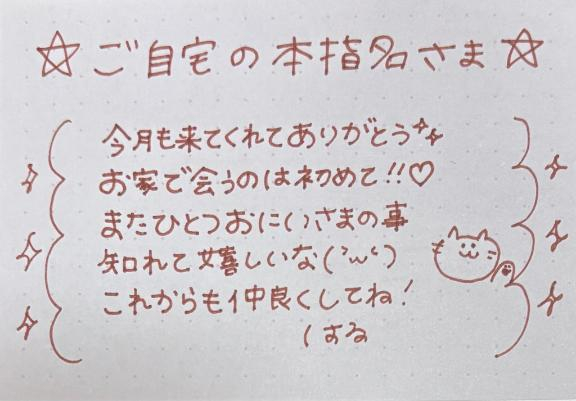 ☆ご自宅の本指名さま☆
今月も来てくれてありがとう
お家で会うのは初めて!!♡
またひとつおにいさまの事
知れて嬉しいな(˘ω˘)
これからも仲良くしてね!